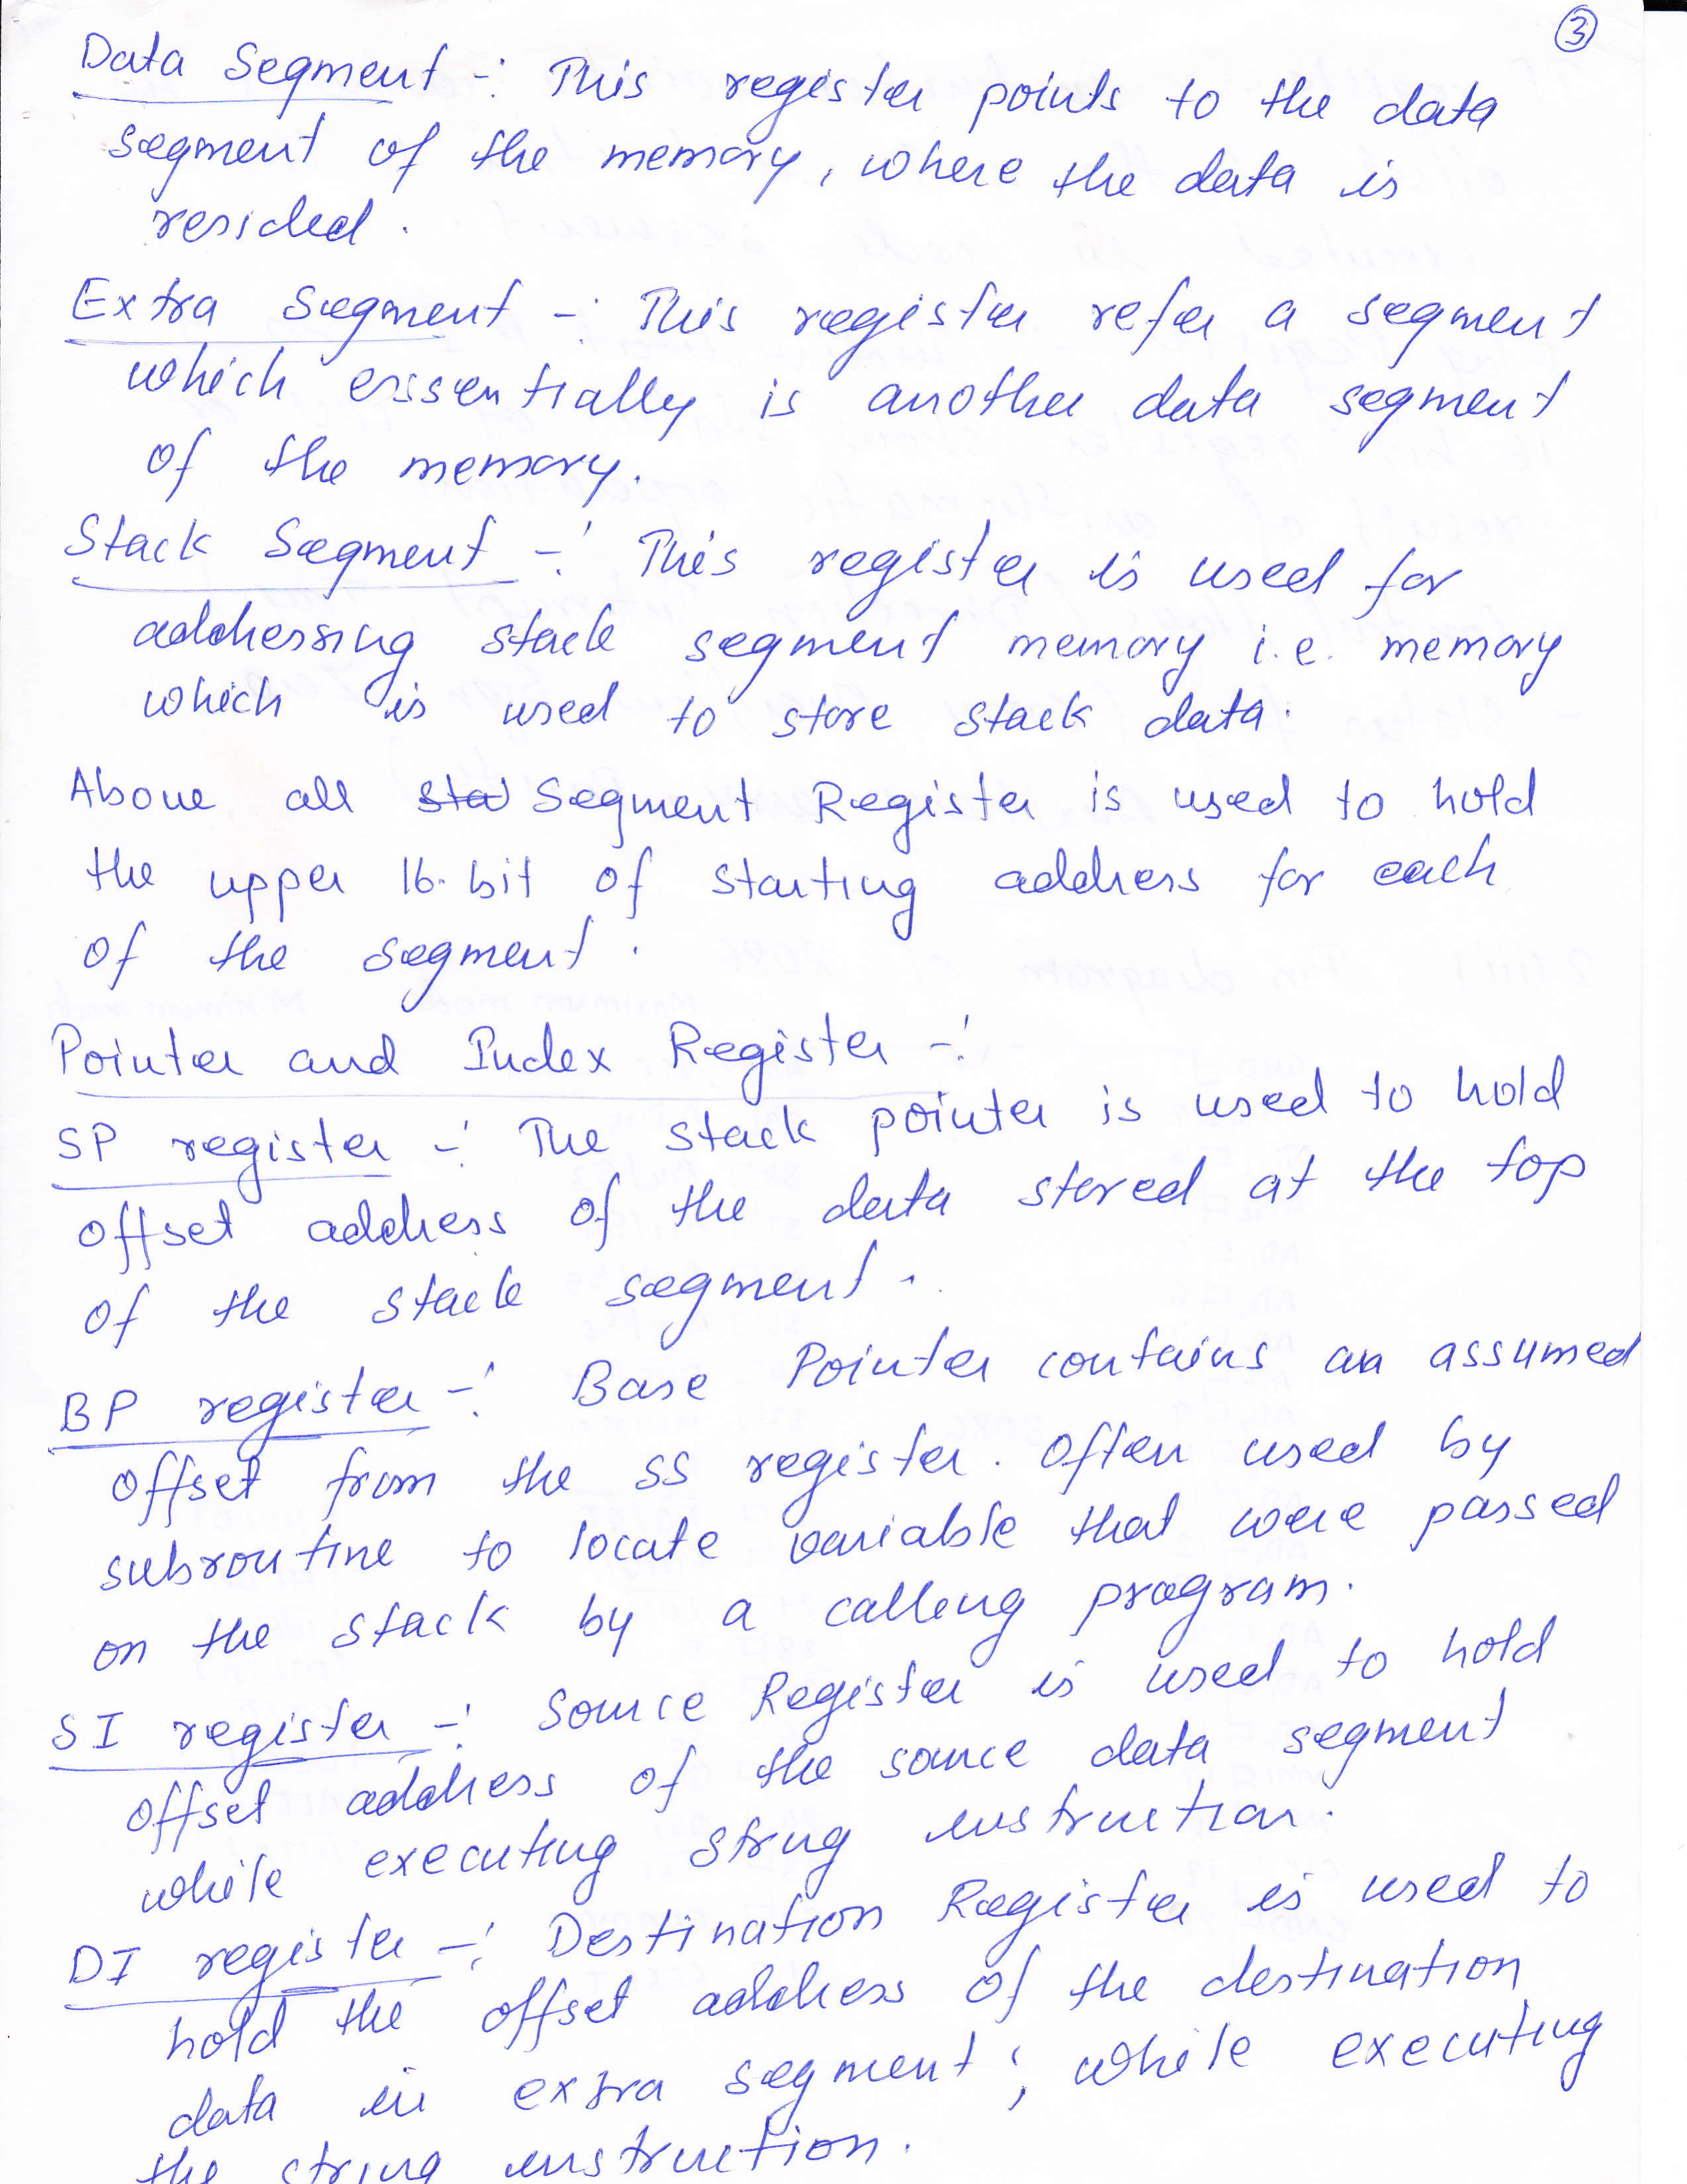 3
Data Segment -: This register points to the data
segment of the memory, where the data is
resided.
Extra Segment -: This register refer a segment
which essentially is another data segment
of the memory.
Stack Segment -: This register is used for
addressing stack segment memory i.e. memory
which is used to store stack data.
Above all sta Segment Register is used to hold
the upper 16-bit of starting address for each
of the segment.
Pointer and Index Register -:
SP register -: The stack pointer is used to hold
offset address of the data stored at the top
of the stack segment.
BP register -: Base Pointer contains an assumed
offset from the SS register. Often used by
subroutine to locate variable that were passed
on the stack by a calling program.
SI register -: Source Register is used to hold
offset address of the source data segment
while executing string instruction.
DI register -: Destination Register is used to
hold the offset address of the destination
data in extra segment; while executing
the string instruction.